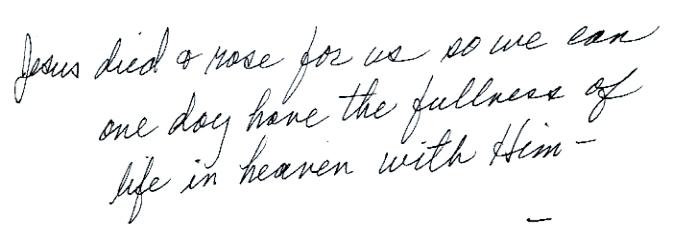 Jesus died & rose for us so we can
one day have the fullness of
life in heaven with Him -
-